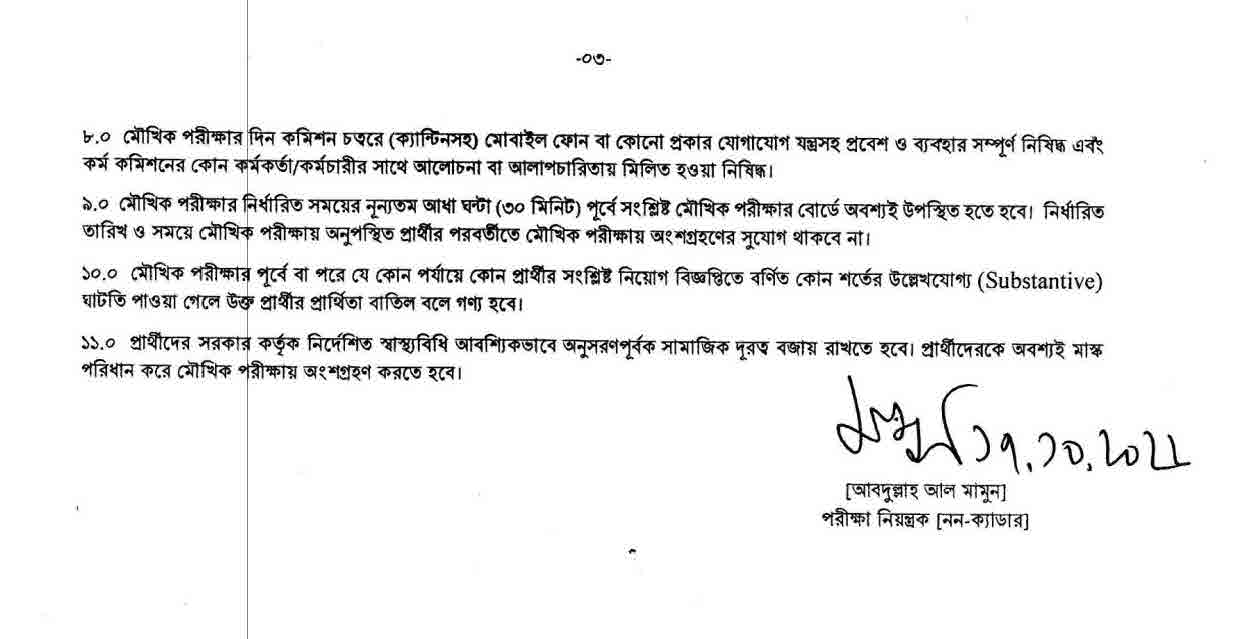 -০৩-
৮.০ মৌখিক পরীক্ষার দিন কমিশন চত্বরে (ক্যান্টিনসহ) মোবাইল ফোন বা কোনো প্রকার যোগাযোগ যন্ত্রসহ প্রবেশ ও ব্যবহার সম্পূর্ণ নিষিদ্ধ এবং
কর্ম কমিশনের কোন কর্মকর্তা/কর্মচারীর সাথে আলোচনা বা আলাপচারিতায় মিলিত হওয়া নিষিদ্ধ।
৯.০ মৌখিক পরীক্ষার নির্ধারিত সময়ের নূন্যতম আধা ঘন্টা (৩০ মিনিট) পূর্বে সংশ্লিষ্ট মৌখিক পরীক্ষার বোর্ডে অবশ্যই উপস্থিত হতে হবে। নির্ধারিত
তারিখ ও সময়ে মৌখিক পরীক্ষায় অনুপস্থিত প্রার্থীর পরবর্তীতে মৌখিক পরীক্ষায় অংশগ্রহণের সুযোগ থাকবে না।
১০.০ মৌখিক পরীক্ষার পূর্বে বা পরে যে কোন পর্যায়ে কোন প্রার্থীর সংশ্লিষ্ট নিয়োগ বিজ্ঞপ্তিতে বর্ণিত কোন শর্তের উল্লেখযোগ্য (Substantive)
ঘাটতি পাওয়া গেলে উক্ত প্রার্থীর প্রার্থিতা বাতিল বলে গণ্য হবে।
১১.০ প্রার্থীদের সরকার কর্তৃক নির্দেশিত স্বাস্থ্যবিধি আবশ্যিকভাবে অনুসরণপূর্বক সামাজিক দূরত্ব বজায় রাখতে হবে। প্রার্থীদেরকে অবশ্যই মাস্ক
পরিধান করে মৌখিক পরীক্ষায় অংশগ্রহণ করতে হবে।
১৭.১০.২০২২
[আবদুল্লাহ আল মামুন]
পরীক্ষা নিয়ন্ত্রক [নন-ক্যাডার]